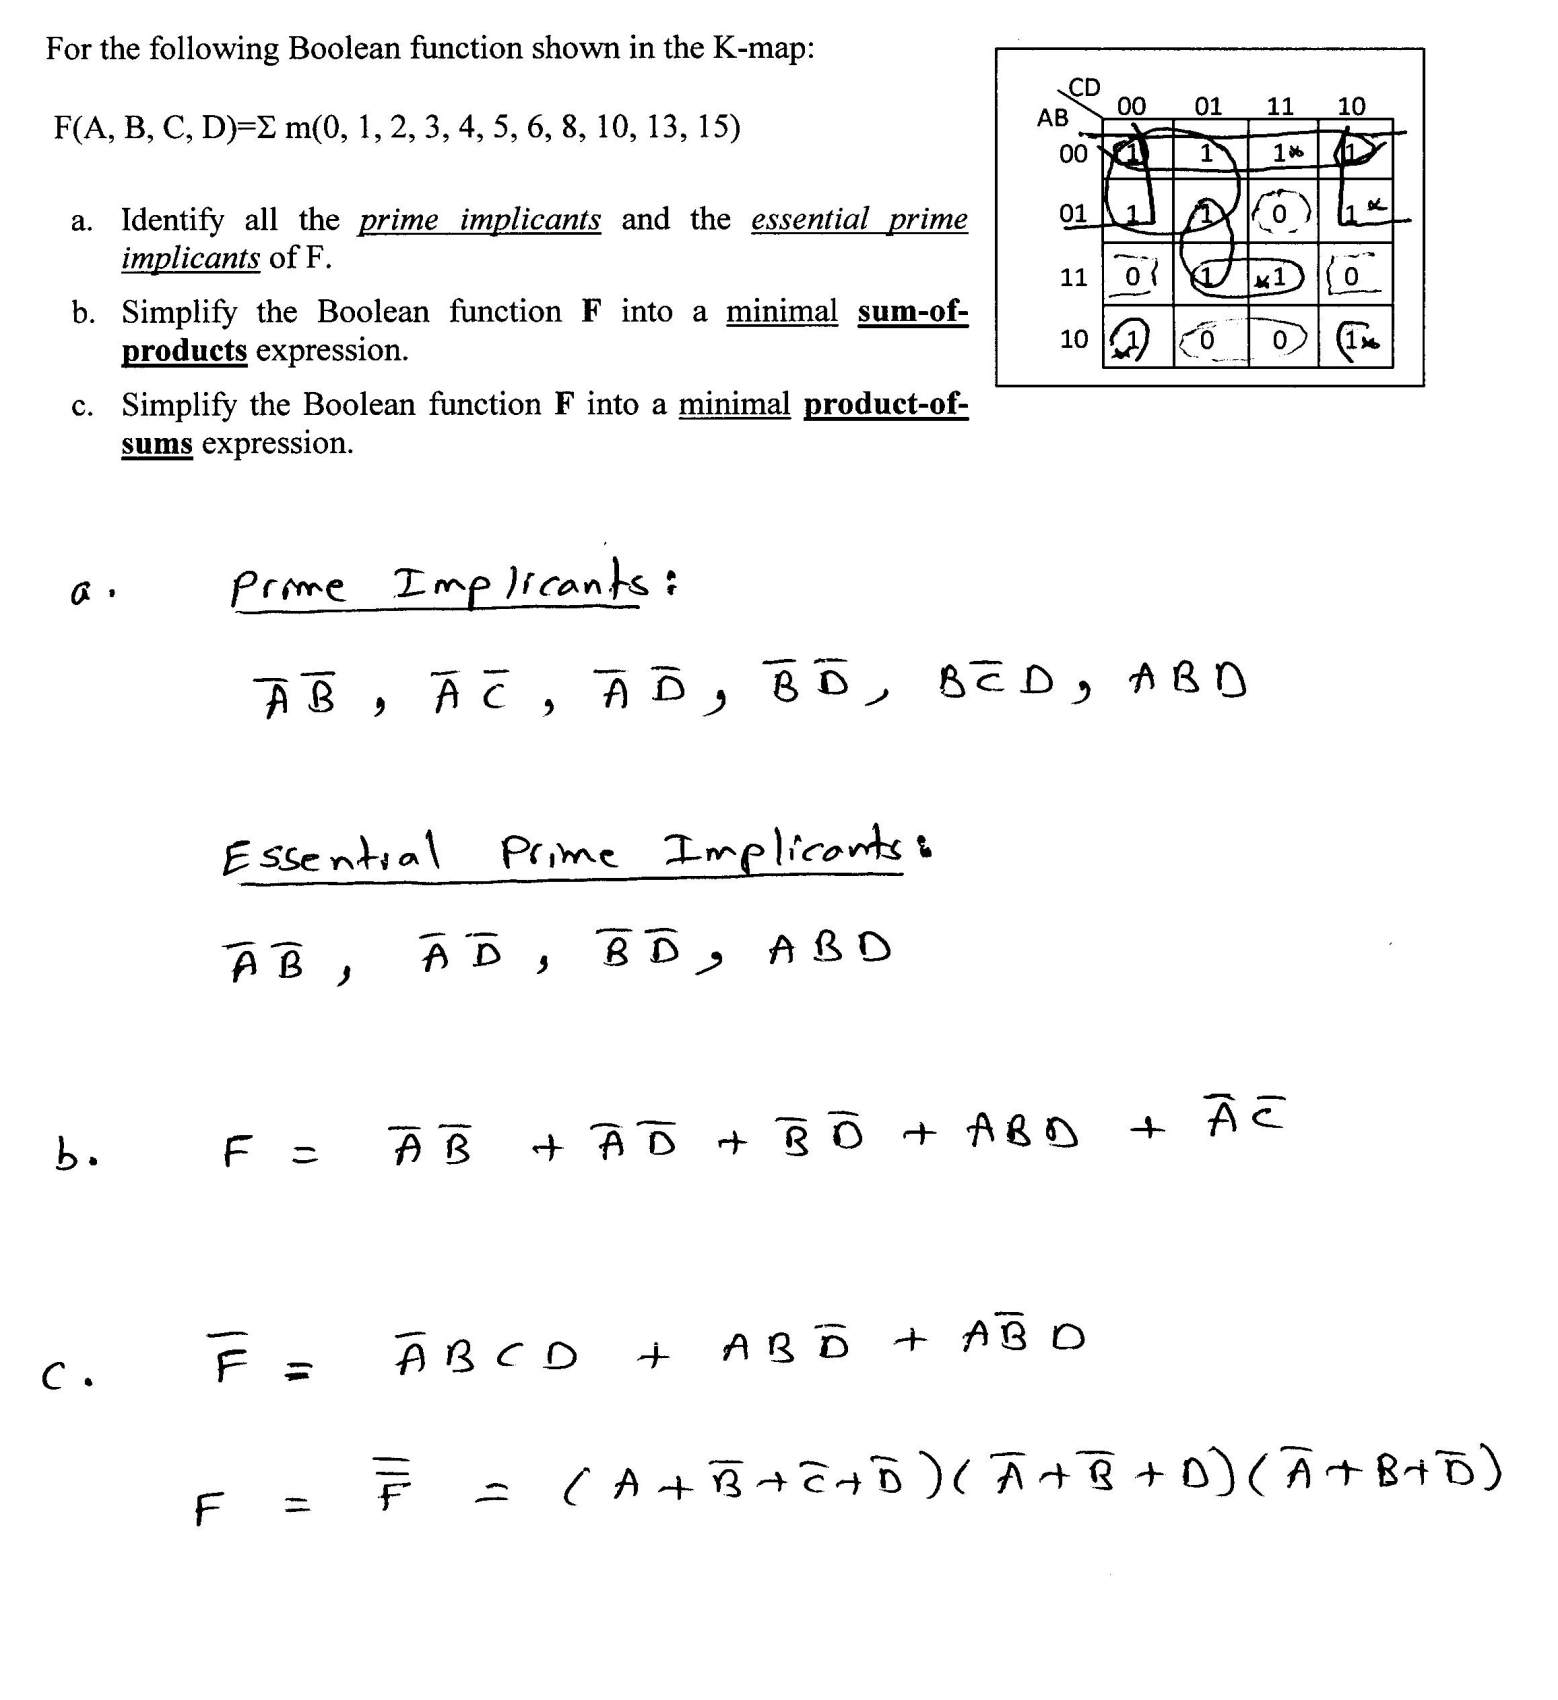 For the following Boolean function shown in the K-map:
F(A, B, C, D)=Σ m(0, 1, 2, 3, 4, 5, 6, 8, 10, 13, 15)
a. Identify all the prime implicants and the essential prime
implicants of F.
b. Simplify the Boolean function F into a minimal sum-of-
products expression.
c. Simplify the Boolean function F into a minimal product-of-
sums expression.
CD
AB 00 01 11 10
00 1 1 1* 1
01 1 1 0 1*
11 0 1 *1 0
10 *1 0 0 1*
a. Prime Implicants:
A̅ B̅ , A̅ C̅ , A̅ D̅ , B̅ D̅ , B C̅ D , A B D
Essential Prime Implicants:
A̅ B̅ , A̅ D̅ , B̅ D̅ , A B D
b. F = A̅ B̅ + A̅ D̅ + B̅ D̅ + A B D + A̅ C̅
c. F̅ = A̅ B C D + A B D̅ + A B̅ D
F = F̿ = (A + B̅ + C̅ + D̅)(A̅ + B̅ + D)(A̅ + B + D̅)